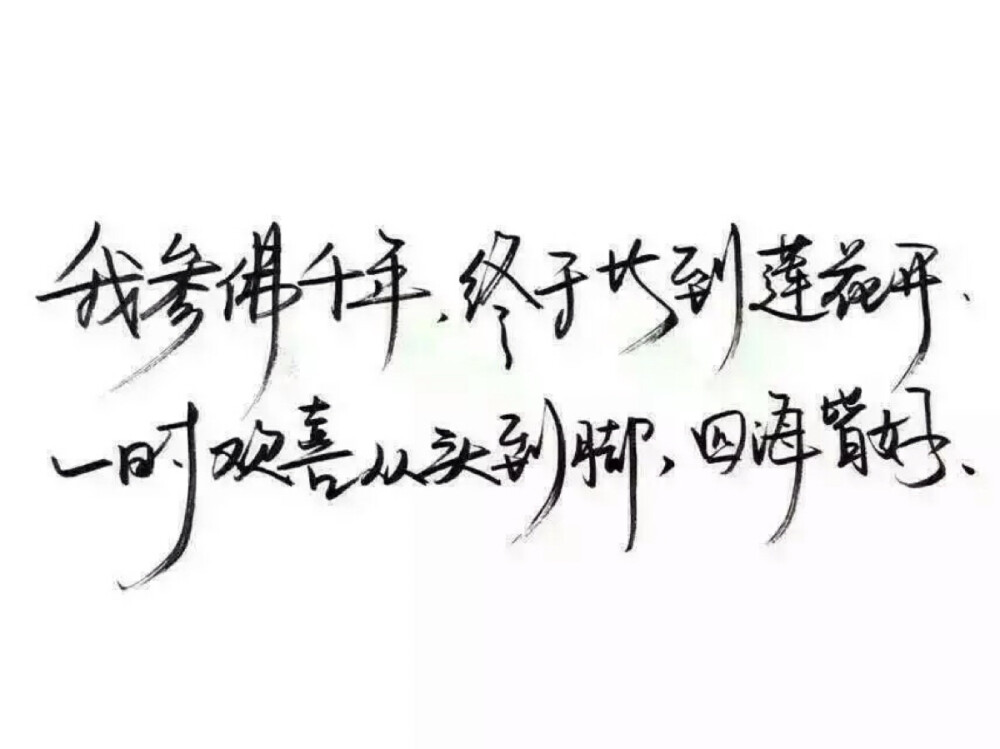 我参佛千年，终于等到莲花开、
一时欢喜从头到脚，四海皆好、